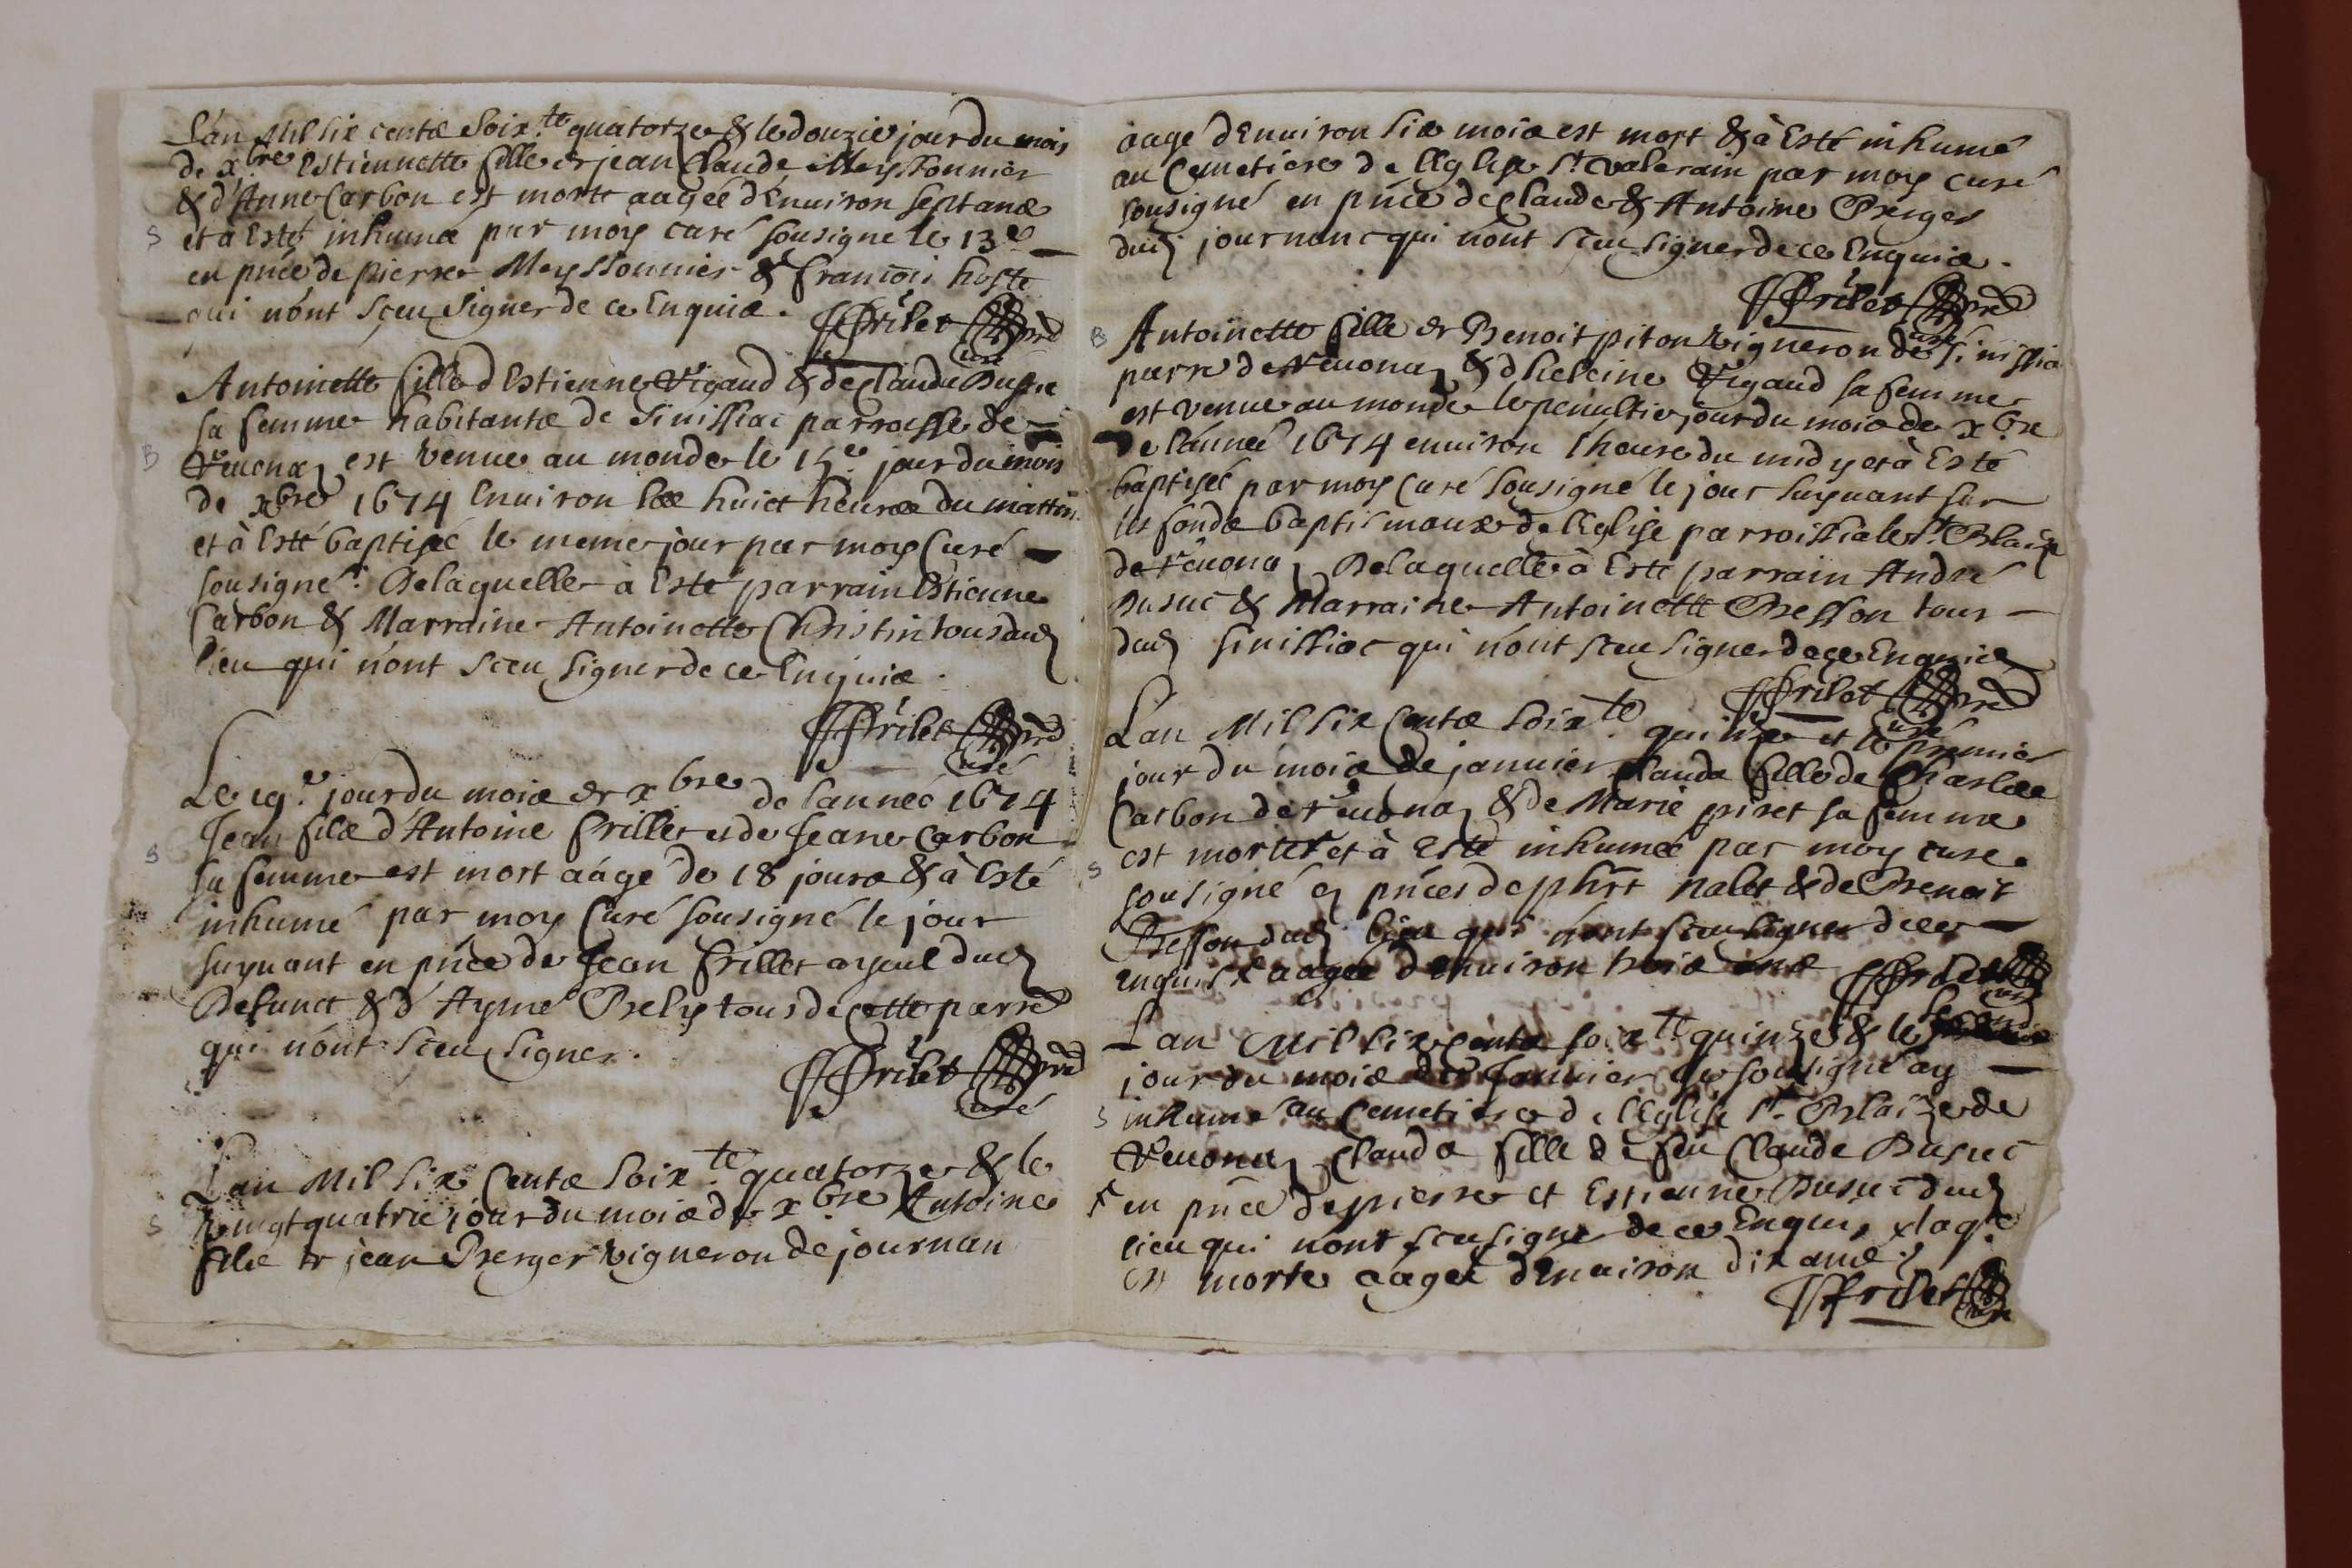 L'an Mil six cents soix.te quatorze & le douzie jour du mois
de x.bre Estiennette fille de jean Claude Meyssonnier
& d'Anne Carbon est morte aagée d'Enuiron sept ans
S et à Esté inhumé par moy curé sousigné le 13e
en pnce de pierre Meyssonnier & françois hoste
qui n'ont sçeu signer de ce Enquis. Frilet pre
Curé
Antoinette fille d'Estienne Vigaud & de Claude Busue
sa femme habitants de Sinissiac parroisse de
B Veuonas est venue au monde le 15e jour du mois
de xbre 1674 Enuiron les huict heures du mattin
et à Esté baptisée le meme jour par moy Curé
sousigné. De laquelle à Esté parrain Estienne
Carbon & Marraine Antoinette Christin tous dud
lieu qui n'ont sceu signer de ce Enquis.
Frilet pre
Curé
Le 19.e jour du mois de xbre de l'année 1674
Jean fils d'Antoine frillet et de Jeane Carbon
S sa femme est mort aâgé de 18 jours & à Esté
inhumé par moy Curé sousigné le jour
suyuant en pnce de Jean frillet ayeul dud
Defunct & d'Aymé Bely tous de cette parre
qui n'ont sceu signer.
Frilet pre
Curé
L'an Mil six Cents soix.te quatorze & le
S vingt quatrie jour du mois de xbre Antoine
fils de jean Berger Vigneron de journan
aagé d'Enuiron six mois est mort & à Esté inhumé
au Cemetiere de l'Eglise St valerain par moy curé
sousigné en pnce de Claude & Antoine Berger
dud journan qui n'ont sceu signer de ce Enquis.
Frilet pre
curé
B Antoinette fille de Benoit piton Vigneron de sinissia
parre de Veuonas & d'heleine Vigaud sa femme
est venue au monde le penultie jour du mois de x.bre
de l'année 1674 enuiron l'heure du midy et à Esté
baptisée par moy Curé sousigné le jour suyuant sur
les fonds baptismaux de l'Eglise parroissiale St. Blaise
de Veuonas De laquelle à Esté parrain André
Busuc & Marraine Antoinette Besson tous
dud sinissiac qui n'ont sceu signer de ce Enquis
Frilet pre
Curé
L'an Mil six Cents soix.te quinze et le premier
jour du mois de januier Claude fille de Charles
Carbon de Veuonas & de Marie piret sa femme
S est morte et à Esté inhumée par moy curé
sousigné en pnces de phrt nalet & de Benoit
Besson dud lieu qui n'ont sceu signer de ce
enquis & aagée d'enuiron trois ans Frilet
Curé
L'an Mil six Cents soix.te quinze & le second
jour du mois de Januier je sousigné ay
S inhumé au Cemetiere de l'Eglise St. Blaize de
Veuonas Clauda fille de feu Claude Busuc
en pnce de pierre et Estienne Busuc dud
lieu qui n'ont sceu signer de ce Enquis & laq.e
est morte aagée d'Enuiron dix ans.
Frilet
curé